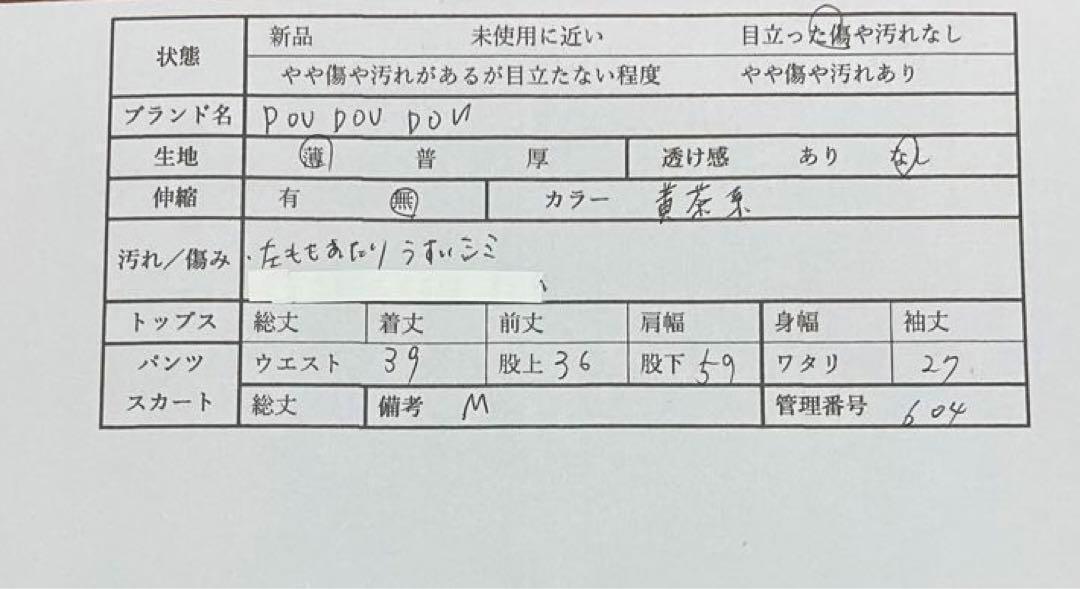 状態 新品 未使用に近い 目立った傷や汚れなし
やや傷や汚れがあるが目立たない程度 やや傷や汚れあり
ブランド名 POU DOU DOU
生地 薄 普 厚 透け感 あり なし
伸縮 有 無 カラー 黄茶系
汚れ／傷み ・左ももあたり うすいシミ
トップス 総丈 着丈 前丈 肩幅 身幅 袖丈
パンツ ウエスト 39 股上 36 股下 59 ワタリ 27
スカート 総丈 備考 M 管理番号 604